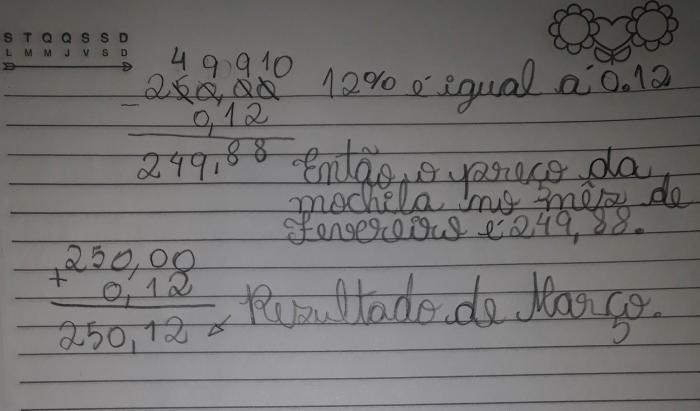 S T Q Q S S D
L M M J V S D
4 9,9 10
250,00 12% é igual a 0.12
- 0,12
249,88 Então, o preço da
mochila no mês de
Fevereiro é 249,88.
250,00
+ 0,12
250,12 Resultado de Março.